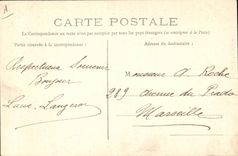 A
CARTE POSTALE
La Correspondance au recto n'est pas acceptée par tous les pays étrangers (se renseigner à la Poste)
Partie réservée à la correspondance
Adresse du destinataire
Respectueux Souvenir
Bonjour
Monsieur V. Roche
289 avenue du Prado
Marseille